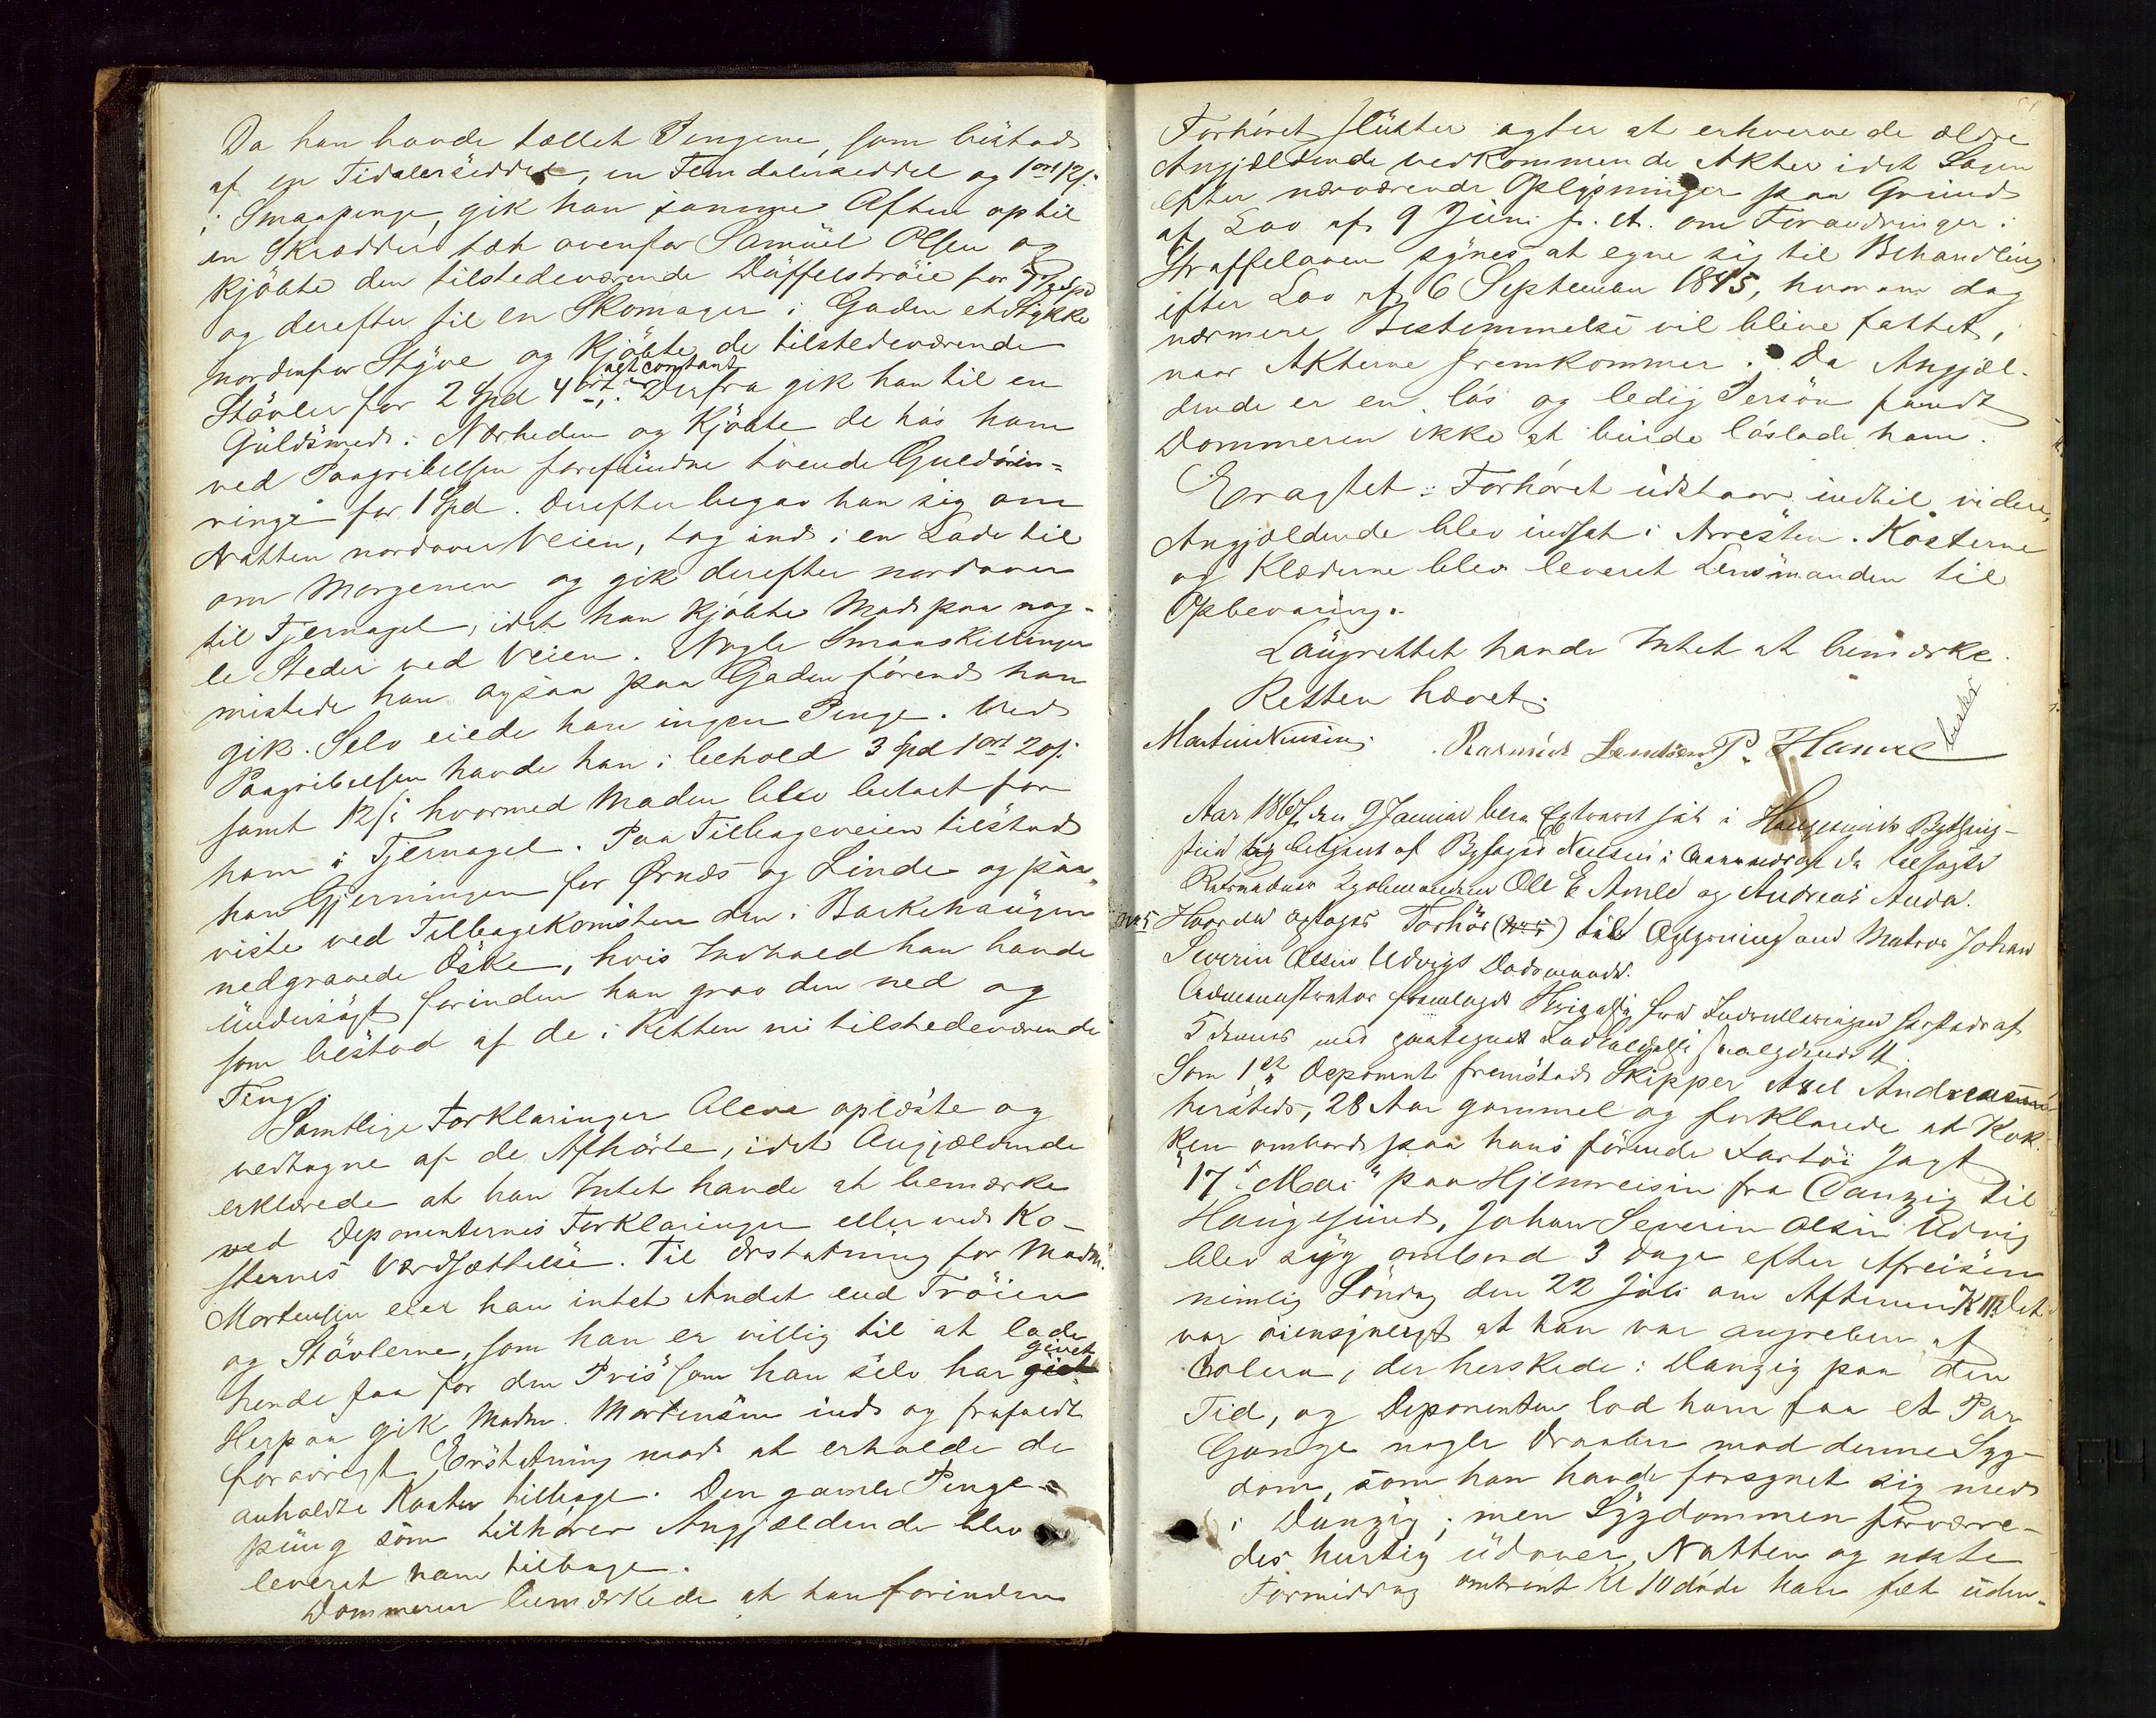 Da han havde tællet Pengene, som bestod
af en Tidalerseddel, en Femdalerseddel og 1 ort 12 s.
i Smaapenge, gik han samme Aften op til
en Skrædder tæt ovenfor Samuel Olsen og
kjøbte den tilstedeværende Düffelstrøie for
og derefter til en Skomager i Gaden et Stykke
nordenfor Styve og kjøbte de tilstedeværende
Støvler for 2 Spd 4 ort alt contant. Derfra gik han til en
Guldsmed i Nærheden og kjøbte de hos ham
ved Paagribelsen forefundne tvende Guldören-
ringe for 1 Spd. Derefter begav han sig om
Natten nordover Veien, tog ind i en Lade til
om Morgenen og gik derefter nordover
til Tjernagel, idet han kjøbte Mad paa nog-
le Steder ved Veien. Nogle Smaaskillinger
mistede han ogsaa paa Gaden förend han
gik. Selv eiede han ingen Penge. Ved
Paagribelsen havde han i behold 3 Spd 1 ort 20 s.
samt 12 s. hvormed Maden blev betalt for
ham i Tjernagel. Paa Tilbageveien tilstod
han Gjerningen for Ørnæs og Linde og paa-
viste ved Tilbagekomsten den i Bakkehaugen
nedgravede Æske, hvis Indhold han havde
undersögt forinden han grov den ned og
som bestod af de i Retten nu tilstedeværende
Ting.
Samtlige Forklaringer bleve oplæste og
vedtagne af de Afhörte, idet Angjældende
erklærede at han Intet havde at bemærke
ved Deponenternes Forklaringer eller ved Ko-
sternes Værdsættelse. Til Erstatning for Madm.
Mortensen eier han intet Andet end Tröien
og Stövlerne, som han er villig til at lade
hende faa for den Pris som han selv har givet
Herpaa gik Madm. Mortensen ind og frafaldt
forøvrigt Erstatning mod at erholde de
anholdte Koster tilbage. Den gamle Penge-
pung som tilhörer Angjældende blev
leveret ham tilbage.
Dommeren bemærkede at han forinden
Forhöret slutter agter at erhverve de ældre
Angjældende vedkommende Akter idet Sagen
efter nærværende Oplysninger paa Grund
af Lov af 9 Juni f. A. om Forandringer i
Straffeloven synes at egne sig til Behandling
efter Lov af 6 September 1845, hvorom dog
nærmere Bestemmelse vil blive fattet,
naar Akterne fremkommer. Da Angjæl-
dende er en lös og ledig Person fandt
Dommeren ikke at burde löslade ham.
Eragtet: Forhöret udstaar indtil videre,
Angjældende blev indsat i Arresten. Kosterne
og Klæderne blev leveret Lensmanden til
Opbevaring.
Laugrettet havde Intet at bemærke.
Retten hævet.
Martin Nilsen. Rasmus P. Hauge
Aar 1867 den 9 Januar blev Extraret sat i Haugesunds Bything-
betjent af Byfoged Nielsen i Overværelse af
Ole E Amle og Andreas Anda.
No 5 Hvorda optages Forhör til Oplysning om Matros Johan
Severin Olsen Udvigs Dødsmaade.
Administrator fremlagde Skrivelse fra Indrulleringen
5 dennes med
Som 1ste Deponent fremstod Skipper Axel Andreasen
hersteds, 28 Aar gammel og forklarede at Kok-
ken ombord paa hans förende Fartöi Jagt
"17de Mai" paa Hjemreisen fra Danzig til
Haugesund, Johan Severin Olsen Udvig
blev syg ombord 3 Dage efter Afreisen
nemlig Söndag den 22 Juli om Aftenen Kl Det
var öiensynligt at han var angreben af
Colera, der herskede i Danzig paa den
Tid, og Deponenten lod ham faa et Par
Gange nogle Draaber mod denne Syg-
dom, som han havde forsynet sig med
i Danzig; men Sygdommen forværre-
des hurtig udover Natten og næste
Formiddag omtrent Kl 10 döde han tæt uden-